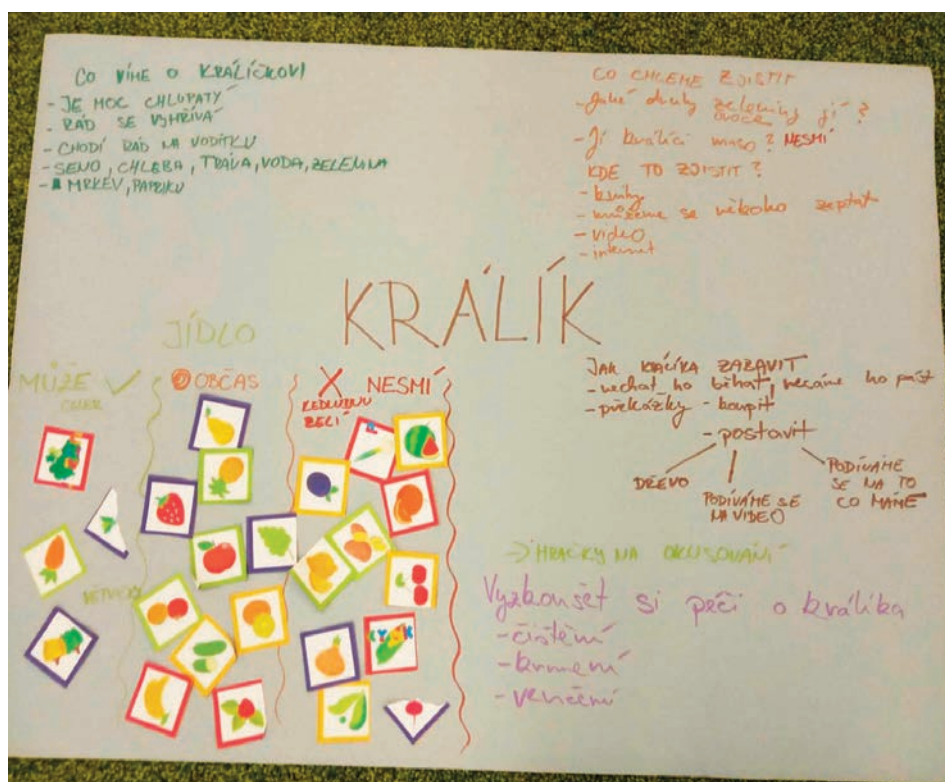 CO VÍME O KRÁLÍČKOVI
- JE MOC CHLUPATÝ
- RÁD SE VYHŘÍVÁ
- CHODÍ RÁD NA VODÍTKU
- SENO, CHLEBA, TRÁVA, VODA, ZELENINA
- MRKEV, PAPRIKU
CO CHCEME ZJISTIT
- Jaké druhy zeleniny jí?
ovoce
- Jí králíci maso? NESMÍ
KDE TO ZJISTIT?
- knihy
- můžeme se někoho zeptat
- video
- internet
KRÁLÍK
JÍDLO
MŮŽE
OBČAS
X NESMÍ
KEDLUBNU
ZELÍ
VĚTVIČKY
JAK KRÁLÍKA ZABAVIT
- nechat ho běhat, necáme ho pást
- překážky - koupit
- postavit
DŘEVO
PODÍVÁME SE
NA VIDEO
PODÍVÁME
SE NA TO
CO MÁME
→ HRAČKY NA OKUSOVÁNÍ
Vyzkoušet si péči o králíka
- čištění
- krmení
- venčení